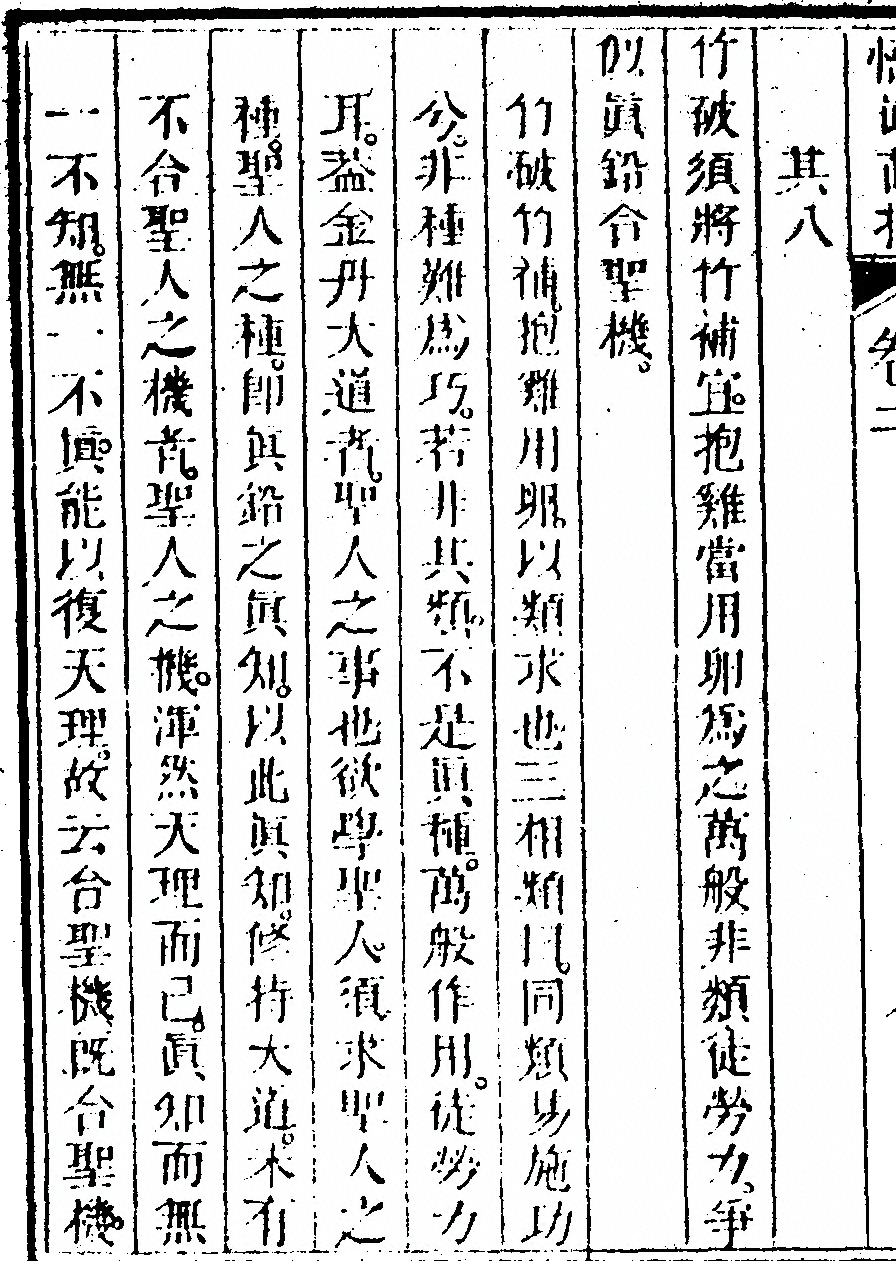 悟眞直指 卷二
其八
竹破須將竹補宜。抱雞當用卵爲之萬般非類徒勞力。爭
似眞鉛合聖機。
竹破竹補。抱雞用卵。以類求也三相類曰。同類易施功
兮。非種難爲巧。若非其類。不是眞種。萬般作用。徒勞力
耳。葢金丹大道者。聖人之事也欲學聖人。須求聖人之
種。聖人之種。卽眞鉛之眞知。以此眞知。修持大道。未有
不合聖人之機者。聖人之機。渾然天理而已。眞知而無
一不知。無一不眞。能以復天理。故云合聖機旣合聖機。